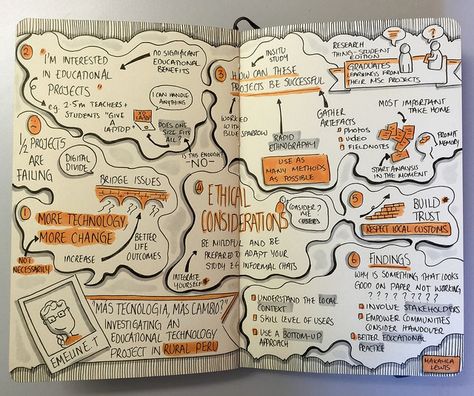 2
"I'M INTERESTED
IN EDUCATIONAL
PROJECTS"
NO SIGNIFICANT
EDUCATIONAL
BENEFITS
eg 2-5m TEACHERS +
STUDENTS "GIVE
LAPTOP"
CAN HANDLE
ANYTHING
DOES ONE
SIZE FITS
ALL?
IS THIS ENOUGH?
-NO-
1/2 PROJECTS
ARE
FAILING
DIGITAL
DIVIDE
BRIDGE ISSUES
1
MORE TECHNOLOGY
MORE CHANGE
NOT
NECESSARILY
INCREASE
BETTER
LIFE
OUTCOMES
EMELINE.T
"MÁS TECNOLOGIA, MÁS CAMBO?"
INVESTIGATING AN
EDUCATIONAL TECHNOLOGY
PROJECT IN RURAL PERU
3
HOW CAN THESE
PROJECTS BE SUCCESSFUL
INSITU
STUDY
WORKED
WITH
BLUE
SPARROW
RAPID
ETHNOGRAPHY
USE AS
MANY METHODS
AS POSSIBLE
GATHER
ARTEFACTS
PHOTOS
VIDEO
FIELDNOTES
RESEARCH
THING-STUDENT
EDITION
GRADUATES
LEARNINGS FROM
THEIR MSC PROJECTS
MOST IMPORTANT
TAKE HOME
PROMPT
MEMORY
START ANALYSIS
IN THE MOMENT
4
ETHICAL
CONSIDERATIONS
CONSIDER?
BE MINDFUL AND BE
PREPARED TO ADAPT YOUR
STUDY eg INFORMAL CHATS
INTEGRATE
YOURSELF
5
BUILD
TRUST
RESPECT LOCAL CUSTOMS
UNDERSTAND THE LOCAL
CONTEXT
SKILL LEVEL OF USERS
USE A BOTTOM-UP
APPROACH
6
FINDINGS
WHY IS SOMETHING THAT LOOKS
GOOD ON PAPER NOT WORKING
? ? ? ? ? ? ? ?
INVOLVE STAKEHOLDERS
EMPOWER COMMUNITIES
CONSIDER HANDOVER
BETTER EDUCATIONAL
PRACTICE
MAKAYLA
LEWIS